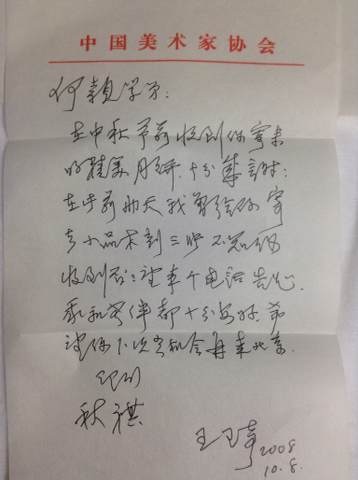 中国美术家协会
何颖学弟:
在中秋节前收到你寄来
的精美月饼,十分感谢!
在半月前我曾给你寄
去小品木刻三帧不知你
收到否?请来个电话告知。
我和老伴都十分安好,希
望你下次有机会再来北京。
祝
秋祺
王琦
2008
10.8.